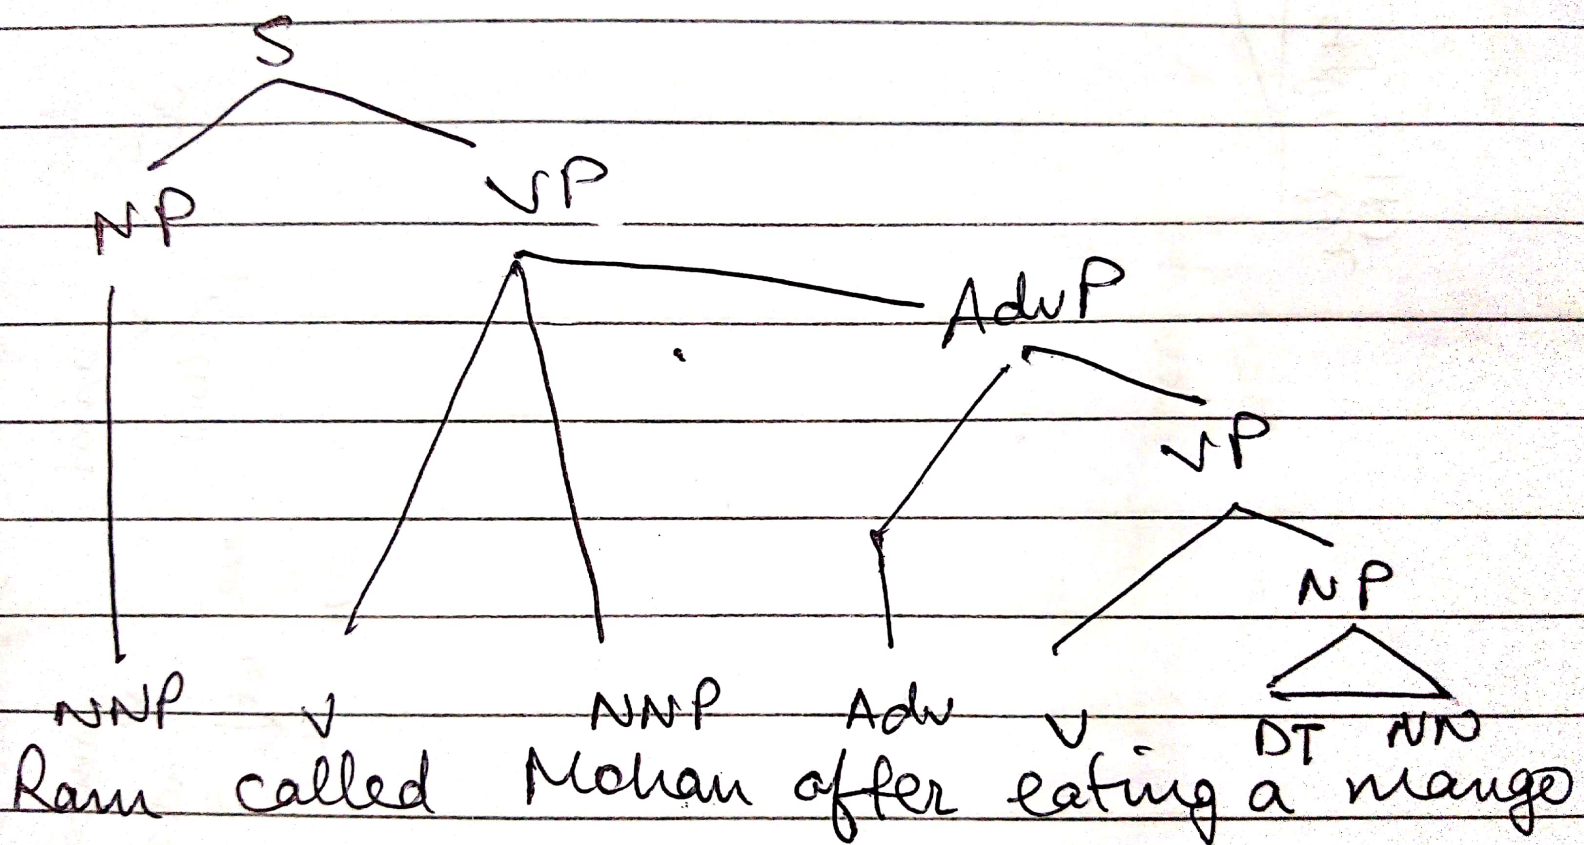 S
NP VP
AdvP
VP
NP
NNP V NNP Adv V DT NN
Ram called Mohan after eating a mango